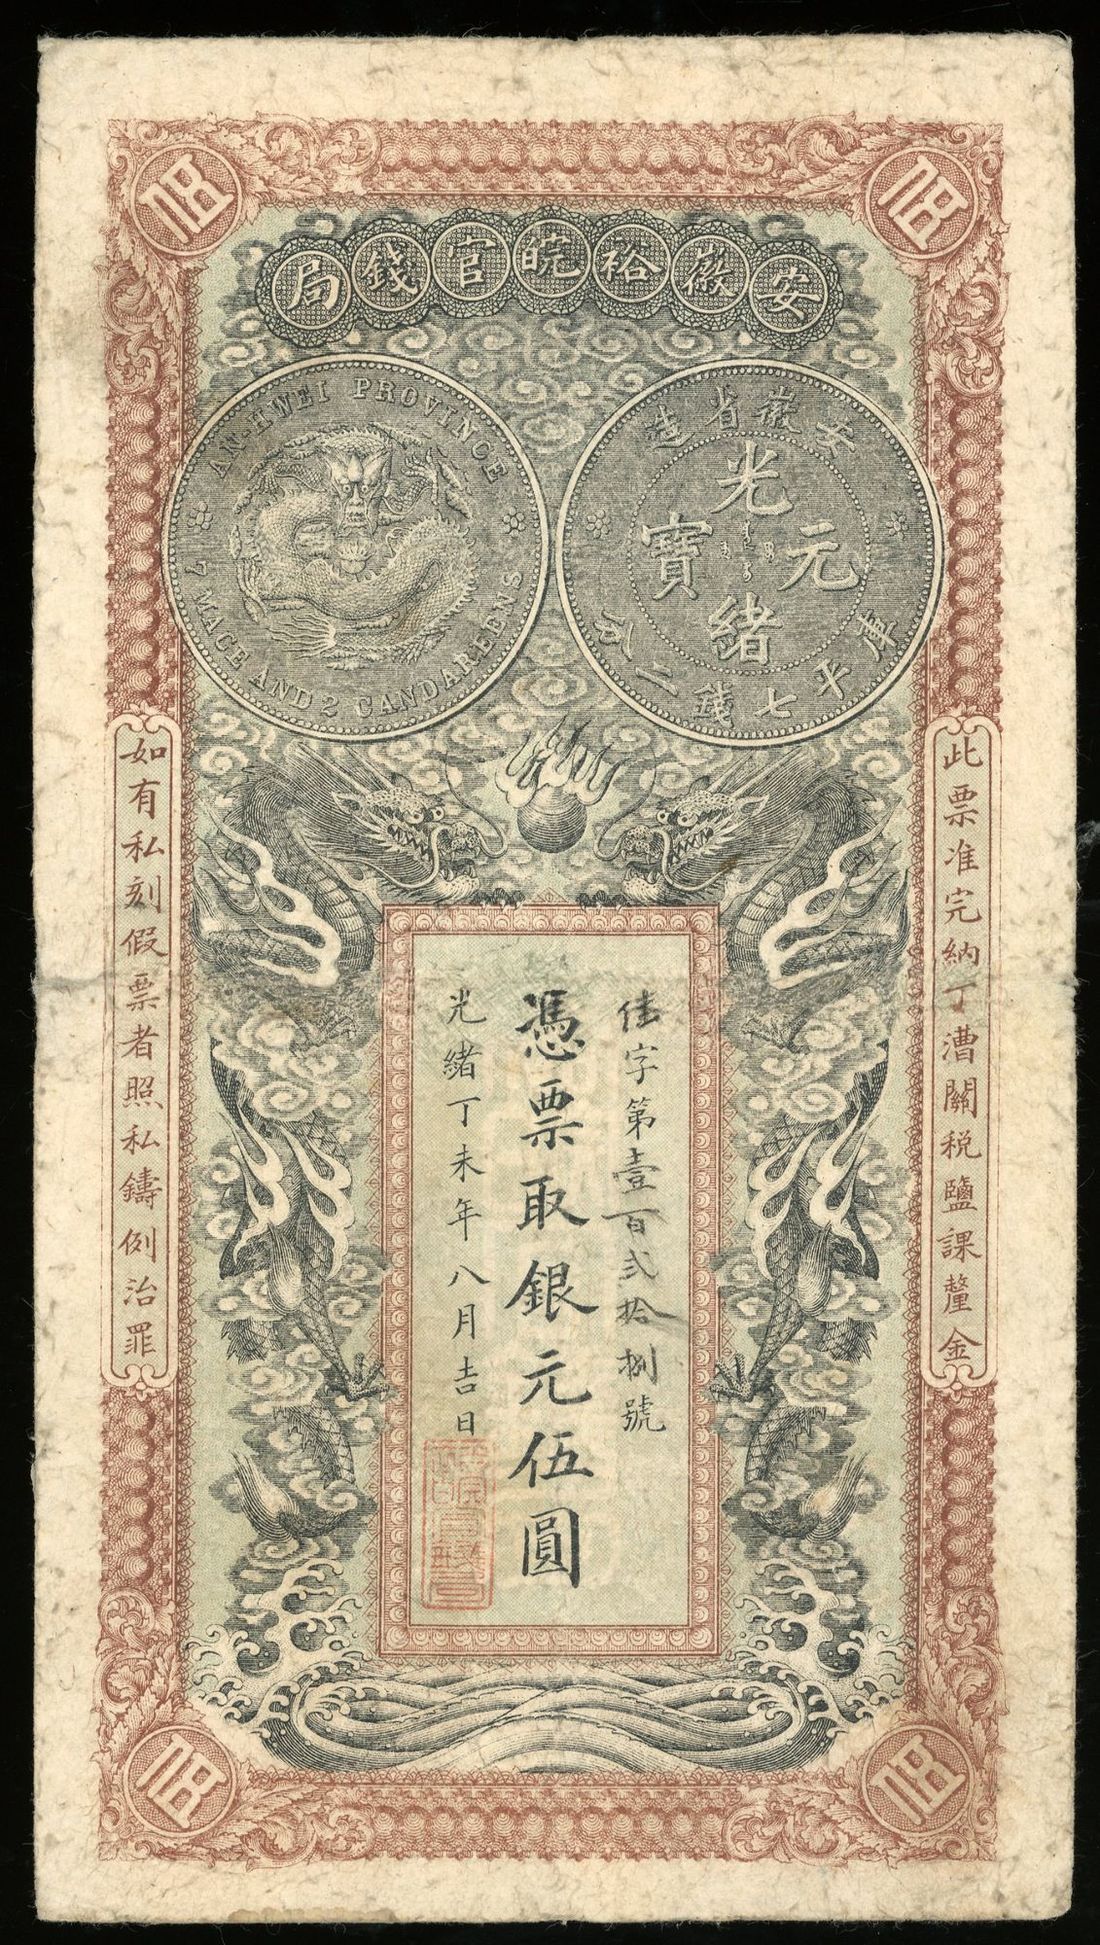 安徽裕皖官錢局
AN-HWEI PROVINCE
7 MACE AND 2 CANDAREENS
安徽省造
光緒元寶
庫平七錢二分
此票准完納丁漕關税鹽課釐金
佳字第壹百弍拾捌號
憑票取銀元伍圓
光緒丁未年八月吉日
如有私刻假票者照私鑄例治罪
伍
伍
伍
伍